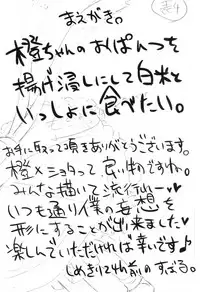 まえがき。
橙ちゃんのおぱんつを
揚げ浸しにして白米と
いっしょに食べたい。
お手に取って頂きありがとうございます。
橙×ショタって、良い物ですわね。
みんな描いて流行れー♥
いつも通り僕の妄想を
形にすることが出来ました♥
楽しんでいただければ幸いです♪
しめきり2日前のすばる。